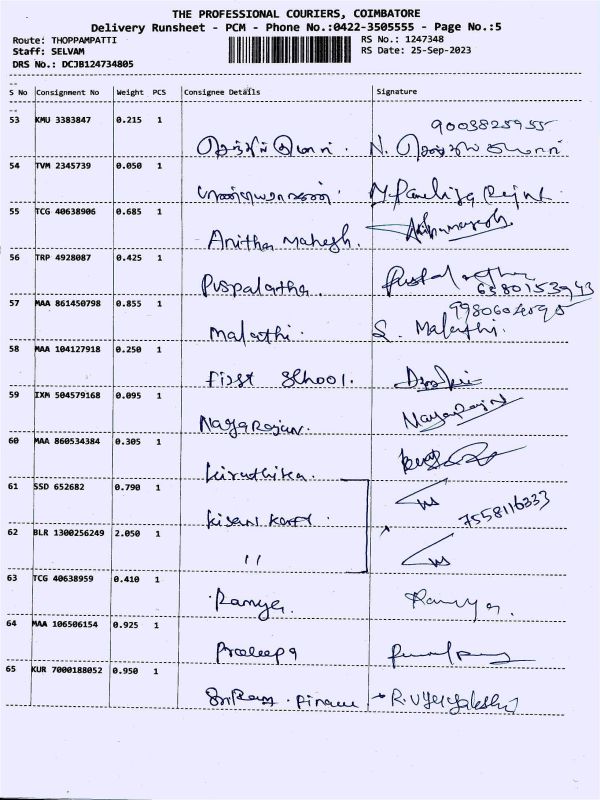 THE PROFESSIONAL COURIERS, COIMBATORE
Delivery Runsheet - PCM - Phone No.:0422-3505555 - Page No.:5
Route: THOPPAMPATTI RS No.: 1247348
Staff: SELVAM RS Date: 25-Sep-2023
DRS No.: DCJB124734805
S No Consignment No Weight PCS Consignee Details Signature
53 KMU 3383847 0.215 1
9003825955
54 TVM 2345739 0.050 1
55 TCG 40638906 0.685 1
Anitha Mahesh.
56 TRP 4928087 0.425 1
Puspalatha.
57 MAA 861450798 0.855 1
Malathi. S. Malathi.
58 MAA 104127918 0.250 1
First School.
59 IXM 504579168 0.095 1
Nagarajan. Nagarajan
60 MAA 860534384 0.305 1
Kiruthika.
61 SSD 652682 0.790 1
7558116333
62 BLR 1300256249 2.050 1
"
63 TCG 40638959 0.410 1
Ramya. Ramya.
64 MAA 106506154 0.925 1
Pradeepa
65 KUR 7000188052 0.950 1